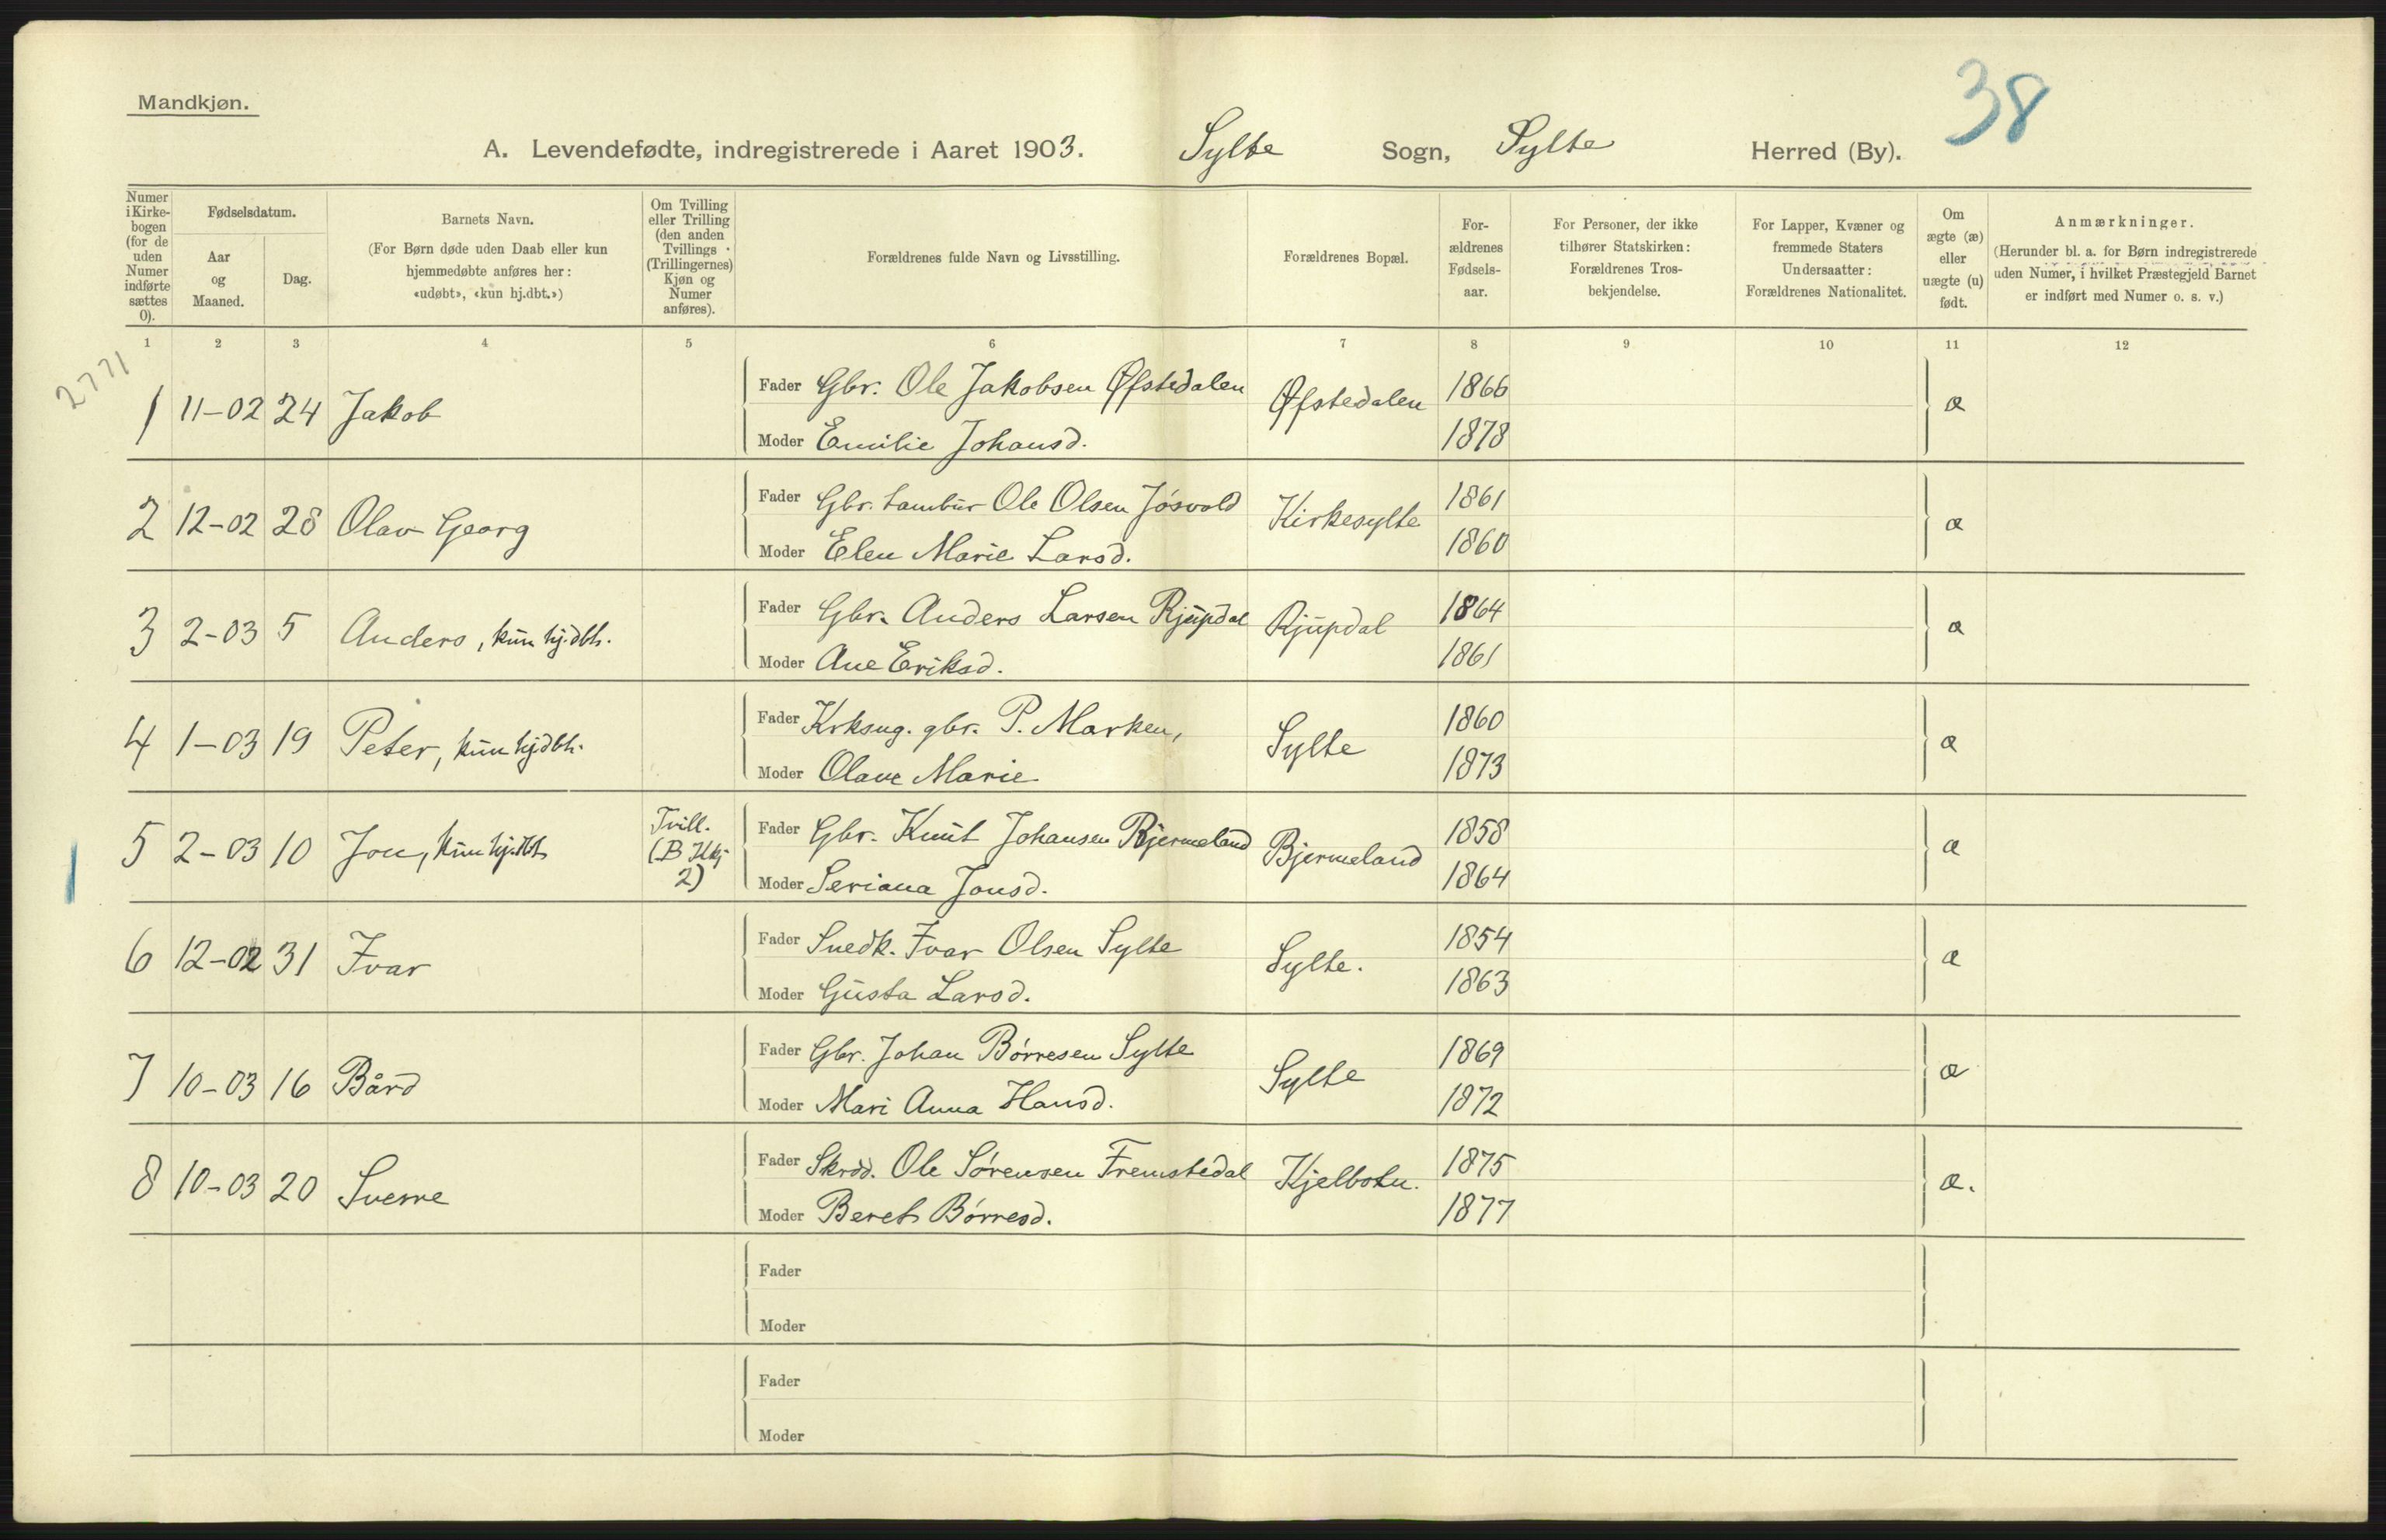 38
Mandkjøn.
A. Levendefødte, indregistrerede i Aaret 1903. Sylte Sogn, Sylte Herred (By).
Numer i Kirkebogen (for de uden Numer indførte sættes 0).
Fødselsdatum.
Aar og Maaned.
Dag.
Barnets Navn.
(For Børn døde uden Daab eller kun hjemmedøbte anføres her: «udøbt», «kun hj.dbt.»)
Om Tvilling eller Trilling (den anden Tvillings (Trillingernes) Kjøn og Numer anføres).
Forældrenes fulde Navn og Livsstilling.
Forældrenes Bopæl.
Forældrenes Fødselsaar.
For Personer, der ikke tilhører Statskirken: Forældrenes Trosbekjendelse.
For Lapper, Kvæner og fremmede Staters Undersaatter: Forældrenes Nationalitet.
Om ægte (æ) eller uægte (u) født.
Anmærkninger.
(Herunder bl. a. for Børn indregistrerede uden Numer, i hvilket Præstegjeld Barnet er indført med Numer o. s. v.)
1 2 3 4 5 6 7 8 9 10 11 12
2771
1 11-02 24 Jakob Fader Gbr. Ole Jakobsen Øfstedalen Øfstedalen 1866 æ
Moder Emilie Johansd. 1878
2 12-02 28 Olav Georg Fader Gbr. tambur Ole Olsen Jøsvold Kirkesylte 1861 æ
Moder Elen Marie Larsd. 1860
3 2-03 5 Anders, kun hj.dbt. Fader Gbr. Anders Larsen Rjupdal Rjupdal 1864 æ
Moder Ane Eriksd. 1861
4 1-03 19 Peter, kun hjdbt. Fader Krksng. gbr. P. Marken, Sylte 1860 æ
Moder Olave Marie 1873
5 2-03 10 Jon, kun hj.dbt. Tvill. (B Kkj 2) Fader Gbr. Knut Johansen Bjermeland Bjermeland 1858 æ
Moder Seriana Jonsd. 1864
6 12-02 31 Ivar Fader Snedk. Ivar Olsen Sylte Sylte. 1854 æ
Moder Gusta Larsd. 1863
7 10-03 16 Bård Fader Gbr. Johan Børresen Sylte Sylte 1869 æ
Moder Mari Anna Hansd. 1872
8 10-03 20 Sverre Fader Skrdd. Ole Sørensen Fremstedal Kjelbotn. 1875 æ.
Moder Beret Børresd. 1877
Fader
Moder
Fader
Moder